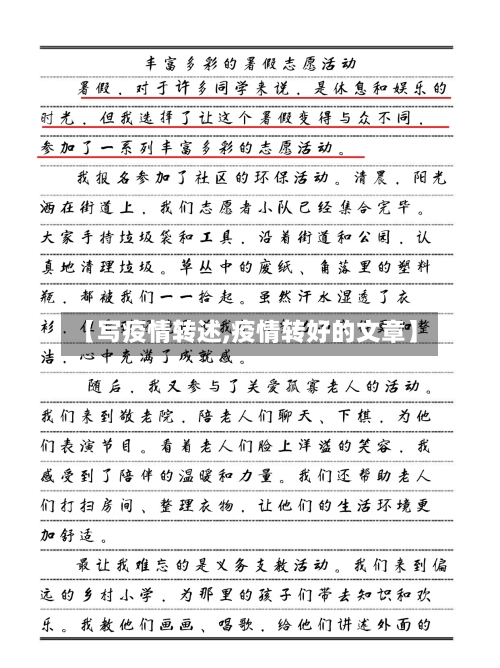 丰富多彩的暑假志愿活动
暑假，对于许多同学来说，是休息和娱乐的
时光，但我选择了让这个暑假变得与众不同，
参加了一系列丰富多彩的志愿活动。
我报名参加了社区的环保活动。清晨，阳光
洒在街道上，我们志愿者小队已经集合完毕。
大家手持垃圾袋和工具，沿着街道和公园，认
真地清理垃圾。草丛中的废纸、角落里的塑料
瓶，都被我们一一拾起。虽然汗水湿透了衣
衫，但
【写疫情转述,疫情转好的文章】
和整
洁，心中充满了成就感。
随后，我又参与了关爱孤寡老人的活动。
我们来到敬老院，陪老人们聊天、下棋，为他
们表演节目。看着老人们脸上洋溢的笑容，我
感受到了陪伴的温暖和力量。我们还帮助老人
们打扫房间、整理衣物，让他们的生活环境更
加舒适。
最让我难忘的是义务支教活动。我们来到偏
远的乡村小学，为那里的孩子们带去知识和欢
乐。我教他们画画、唱歌，给他们讲述外面的